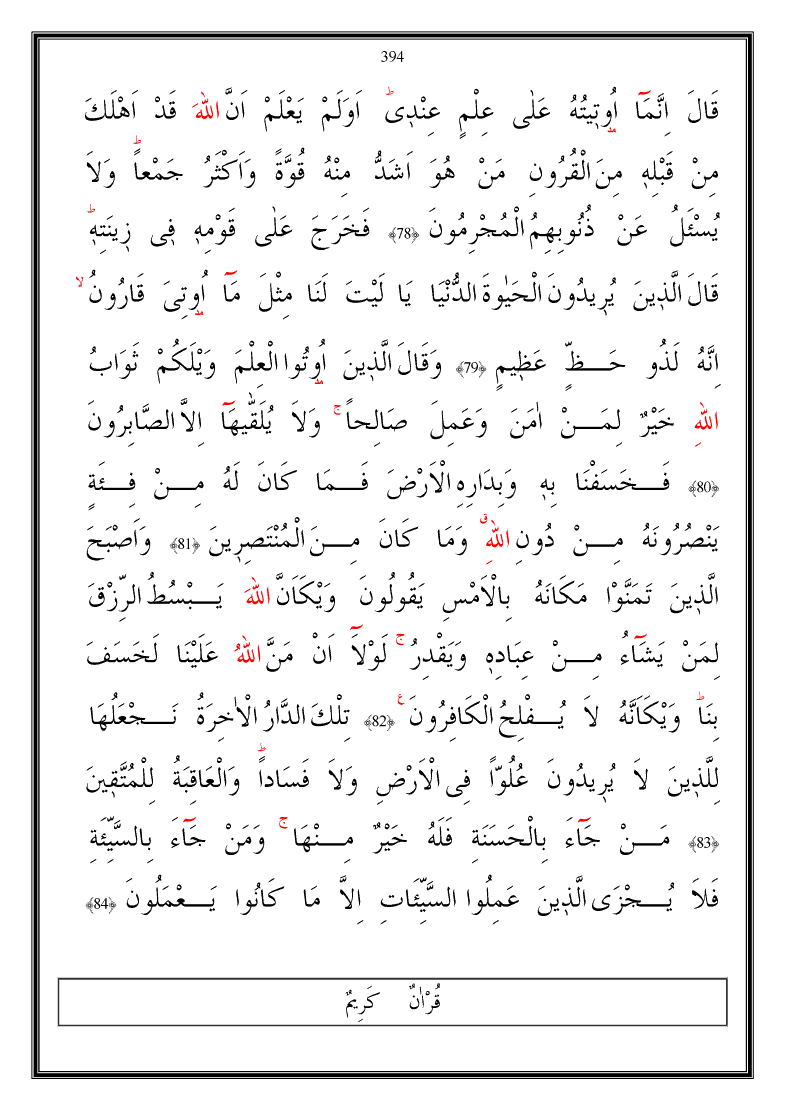 394
قَالَ اِنَّمَٓا اُو۫ت۪يتُهُ عَلٰى عِلْمٍ عِنْد۪ىۜ اَوَلَمْ يَعْلَمْ اَنَّ اللّٰهَ قَدْ اَهْلَكَ
مِنْ قَبْلِه۪ مِنَ الْقُرُونِ مَنْ هُوَ اَشَدُّ مِنْهُ قُوَّةً وَاَكْثَرُ جَمْعاًۜ وَلَا
يُسْـَٔلُ عَنْ ذُنُوبِهِمُ الْمُجْرِمُونَ ﴿78﴾ فَخَرَجَ عَلٰى قَوْمِه۪ ف۪ى ز۪ينَتِه۪ۜ
قَالَ الَّذ۪ينَ يُر۪يدُونَ الْحَيٰوةَ الدُّنْيَا يَا لَيْتَ لَنَا مِثْلَ مَٓا اُو۫تِىَ قَارُونُۙ
اِنَّهُ لَذُو حَـــظٍّ عَظ۪يمٍ ﴿79﴾ وَقَالَ الَّذ۪ينَ اُو۫تُوا الْعِلْمَ وَيْلَكُمْ ثَوَابُ
اللّٰهِ خَيْرٌ لِمَـــنْ اٰمَنَ وَعَمِلَ صَالِحاًۚ وَلَا يُلَقّٰيهَٓا اِلَّا الصَّابِرُونَ
﴿80﴾ فَـــخَسَفْنَا بِه۪ وَبِدَارِهِ الْاَرْضَ فَـــمَا كَانَ لَهُ مِـــنْ فِـــئَةٍ
يَنْصُرُونَهُ مِـــنْ دُونِ اللّٰهِۗ وَمَا كَانَ مِـــنَ الْمُنْتَصِر۪ينَ ﴿81﴾ وَاَصْبَحَ
الَّذ۪ينَ تَمَنَّوْا مَكَانَهُ بِالْاَمْسِ يَقُولُونَ وَيْكَاَنَّ اللّٰهَ يَـــبْسُطُ الرِّزْقَ
لِمَنْ يَشَٓاءُ مِـــنْ عِبَادِه۪ وَيَقْدِرُۚ لَوْلَٓا اَنْ مَنَّ اللّٰهُ عَلَيْنَا لَخَسَفَ
بِنَاۜ وَيْكَاَنَّهُ لَا يُـــفْلِحُ الْكَافِرُونَ ۟ ﴿82﴾ تِلْكَ الدَّارُ الْاٰخِرَةُ نَـــجْعَلُهَا
لِلَّذ۪ينَ لَا يُر۪يدُونَ عُلُوّاً فِى الْاَرْضِ وَلَا فَسَاداًۜ وَالْعَاقِبَةُ لِلْمُتَّق۪ينَ
﴿83﴾ مَـــنْ جَٓاءَ بِالْحَسَنَةِ فَلَهُ خَيْرٌ مِـــنْهَاۚ وَمَنْ جَٓاءَ بِالسَّيِّئَةِ
فَلَا يُـــجْزَى الَّذ۪ينَ عَمِلُوا السَّيِّـَٔاتِ اِلَّا مَا كَانُوا يَـــعْمَلُونَ ﴿84﴾
قُرْاٰنٌ كَرِيمٌ